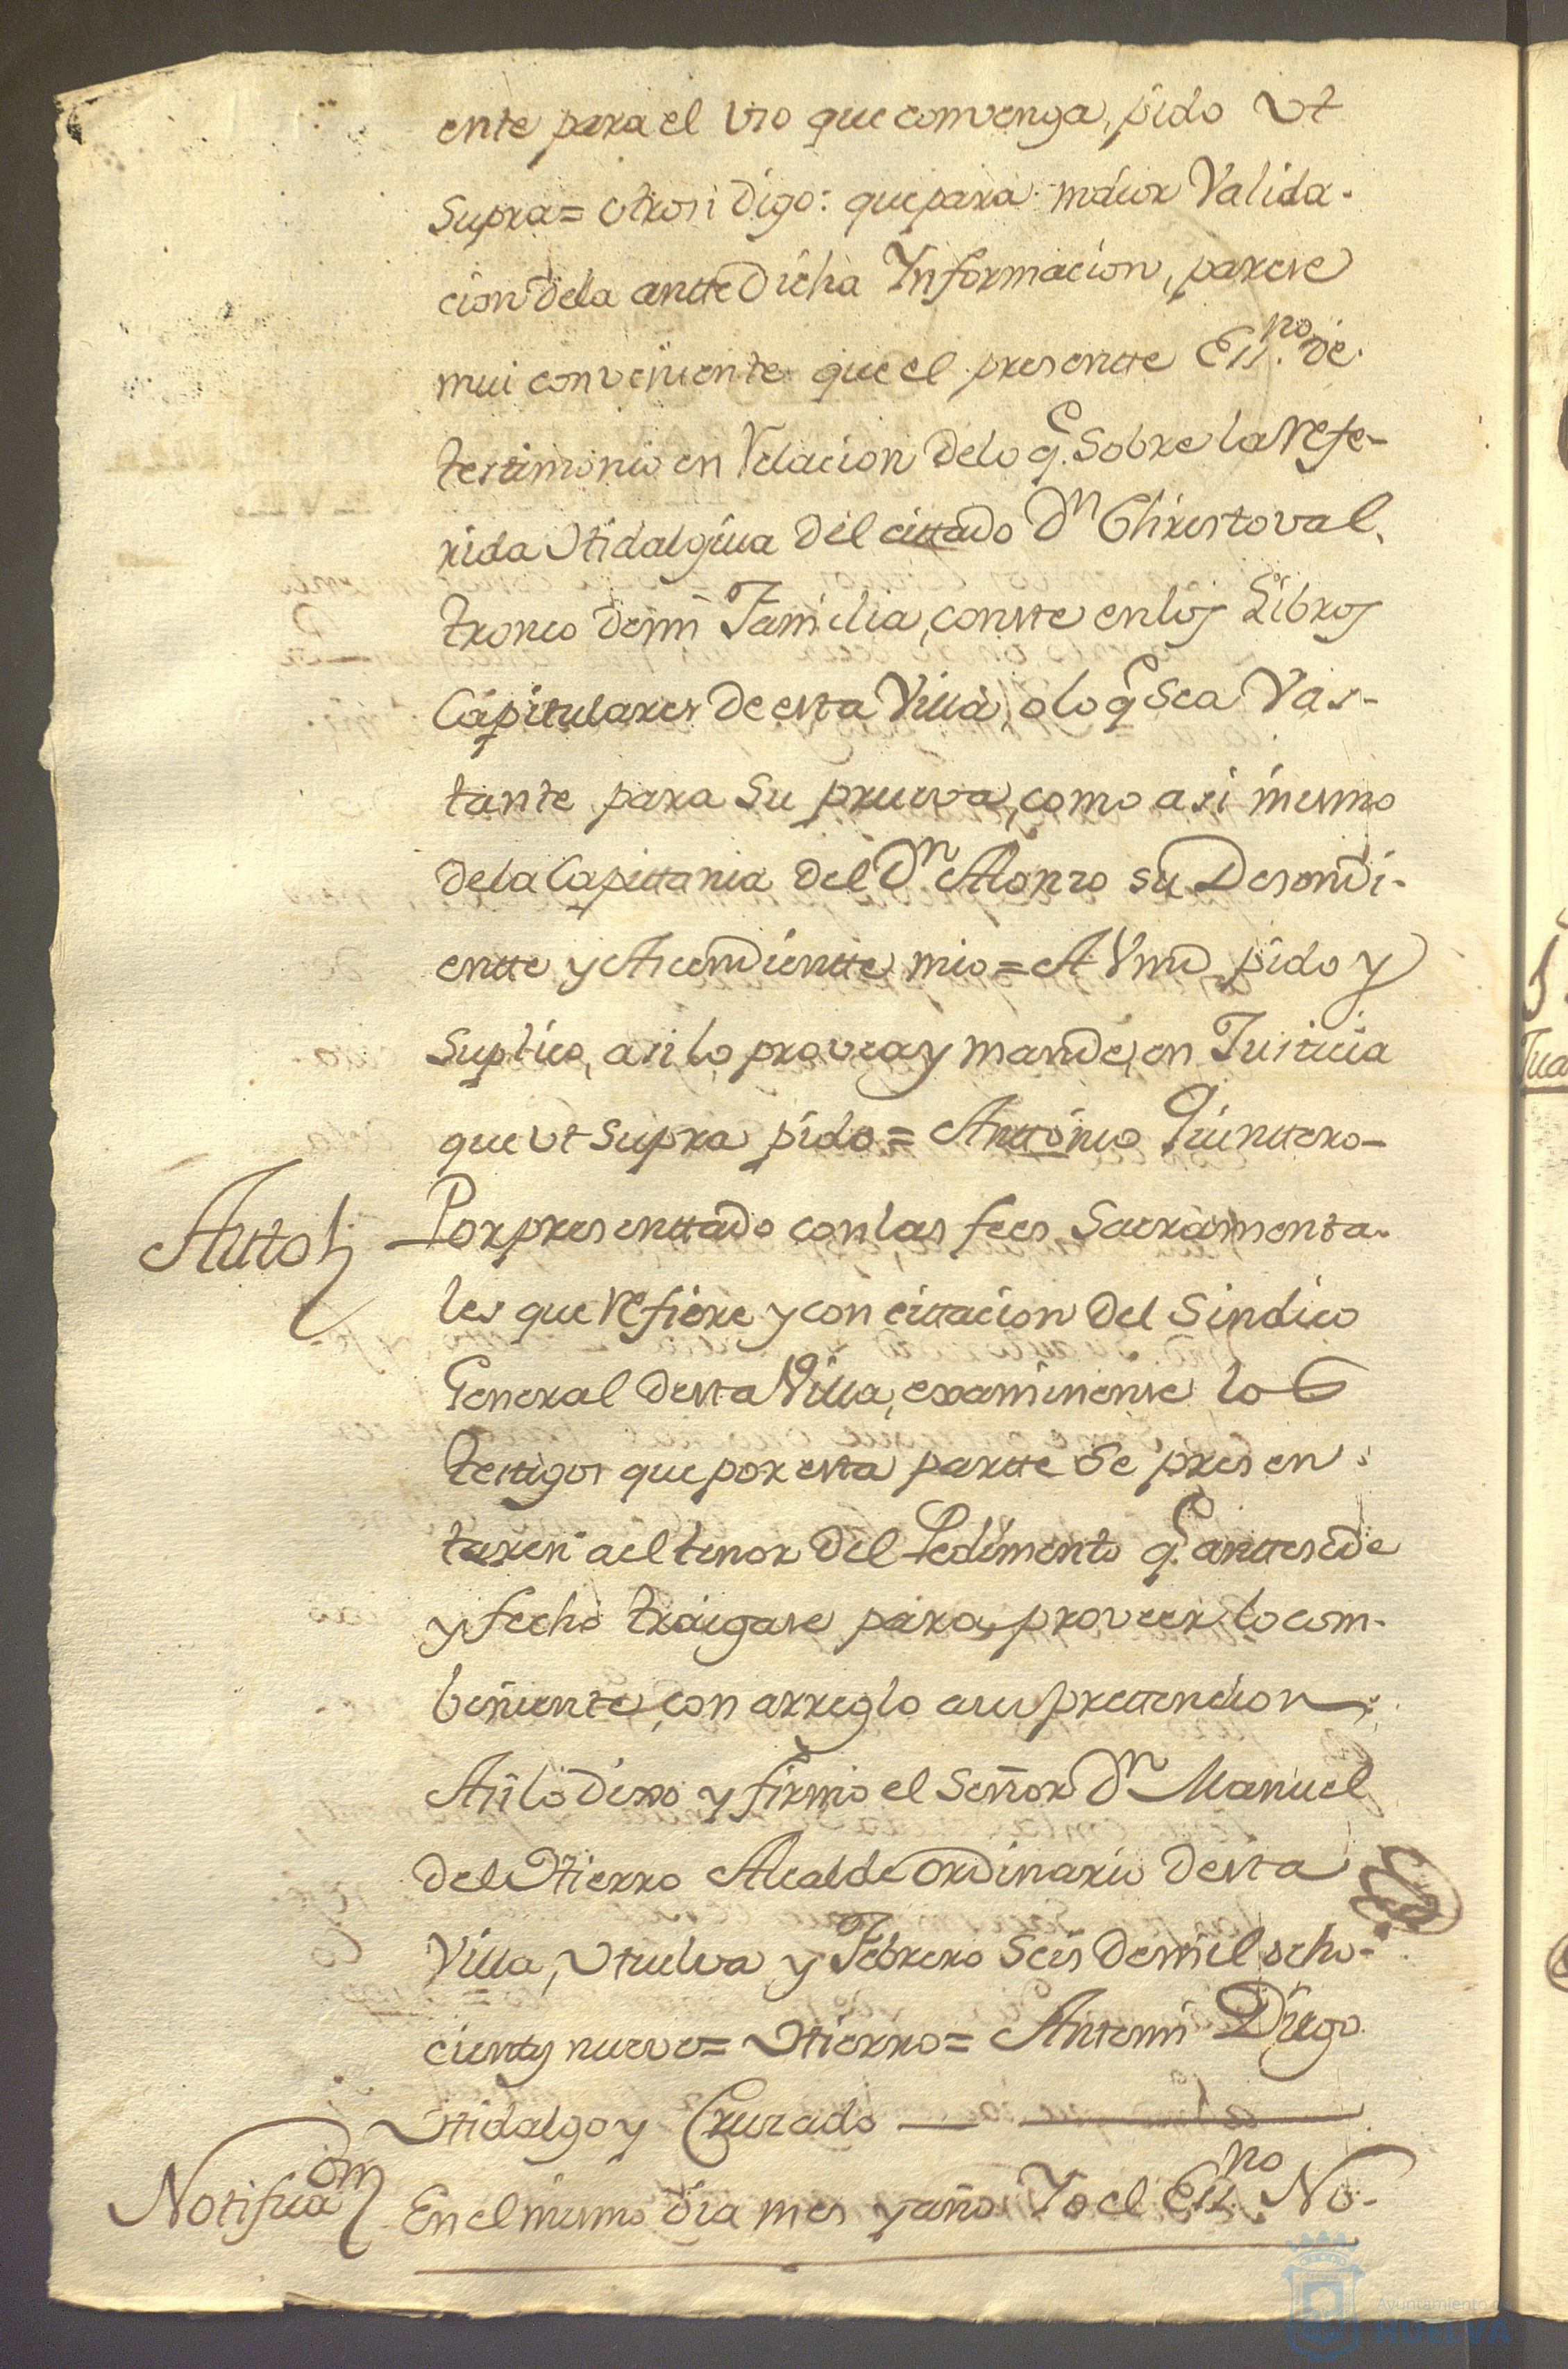 ente para el uso que comvenga, pido Vt
Supra= otrosi Digo: que para maior Valida-
cion dela antte Dicha Informacion, parese
mui conveniente que el presentte Ess.no de
testimonio en Relacion delo q.e Sobre la refe-
rida Hidalguia del cittado Dn Christoval,
tronco demi Familia, conste enlos Libros
Capitulares de esta Villa, olo q.e Sea Vas-
tante para Su prueva, como asi mesmo
dela Capittania del Dn Alonso su Desendi-
entte y Asendientte mio= A Vmd pido y
Suplico, asi lo provea y mande, en Justicia
que Vt Supra pido= Anttonio Quinttero-
Auto
Por presenttado con las fees Sacramenta-
les que refiere y con cittacion del Sindico
General desta Villa, examinense los
testigos que por esta partte Se presen-
taren ael tenor del Pedimento q.e anttesede
y fecho traigase para proveer lo com-
beniente, con arreglo asu prettencion
Asi lo dixo y firmo el Señor Dn Manuel
del Hierro Alcalde ordinario desta
Villa, Huelva y Febrero Seis de mil ocho-
cientos nueve= Hierro= Antemi Diego
Hidalgo y Cruzado
Notificaion
En el mismo dia mes y año Yo el Ess.no No-
Ayuntamiento de
HUELVA